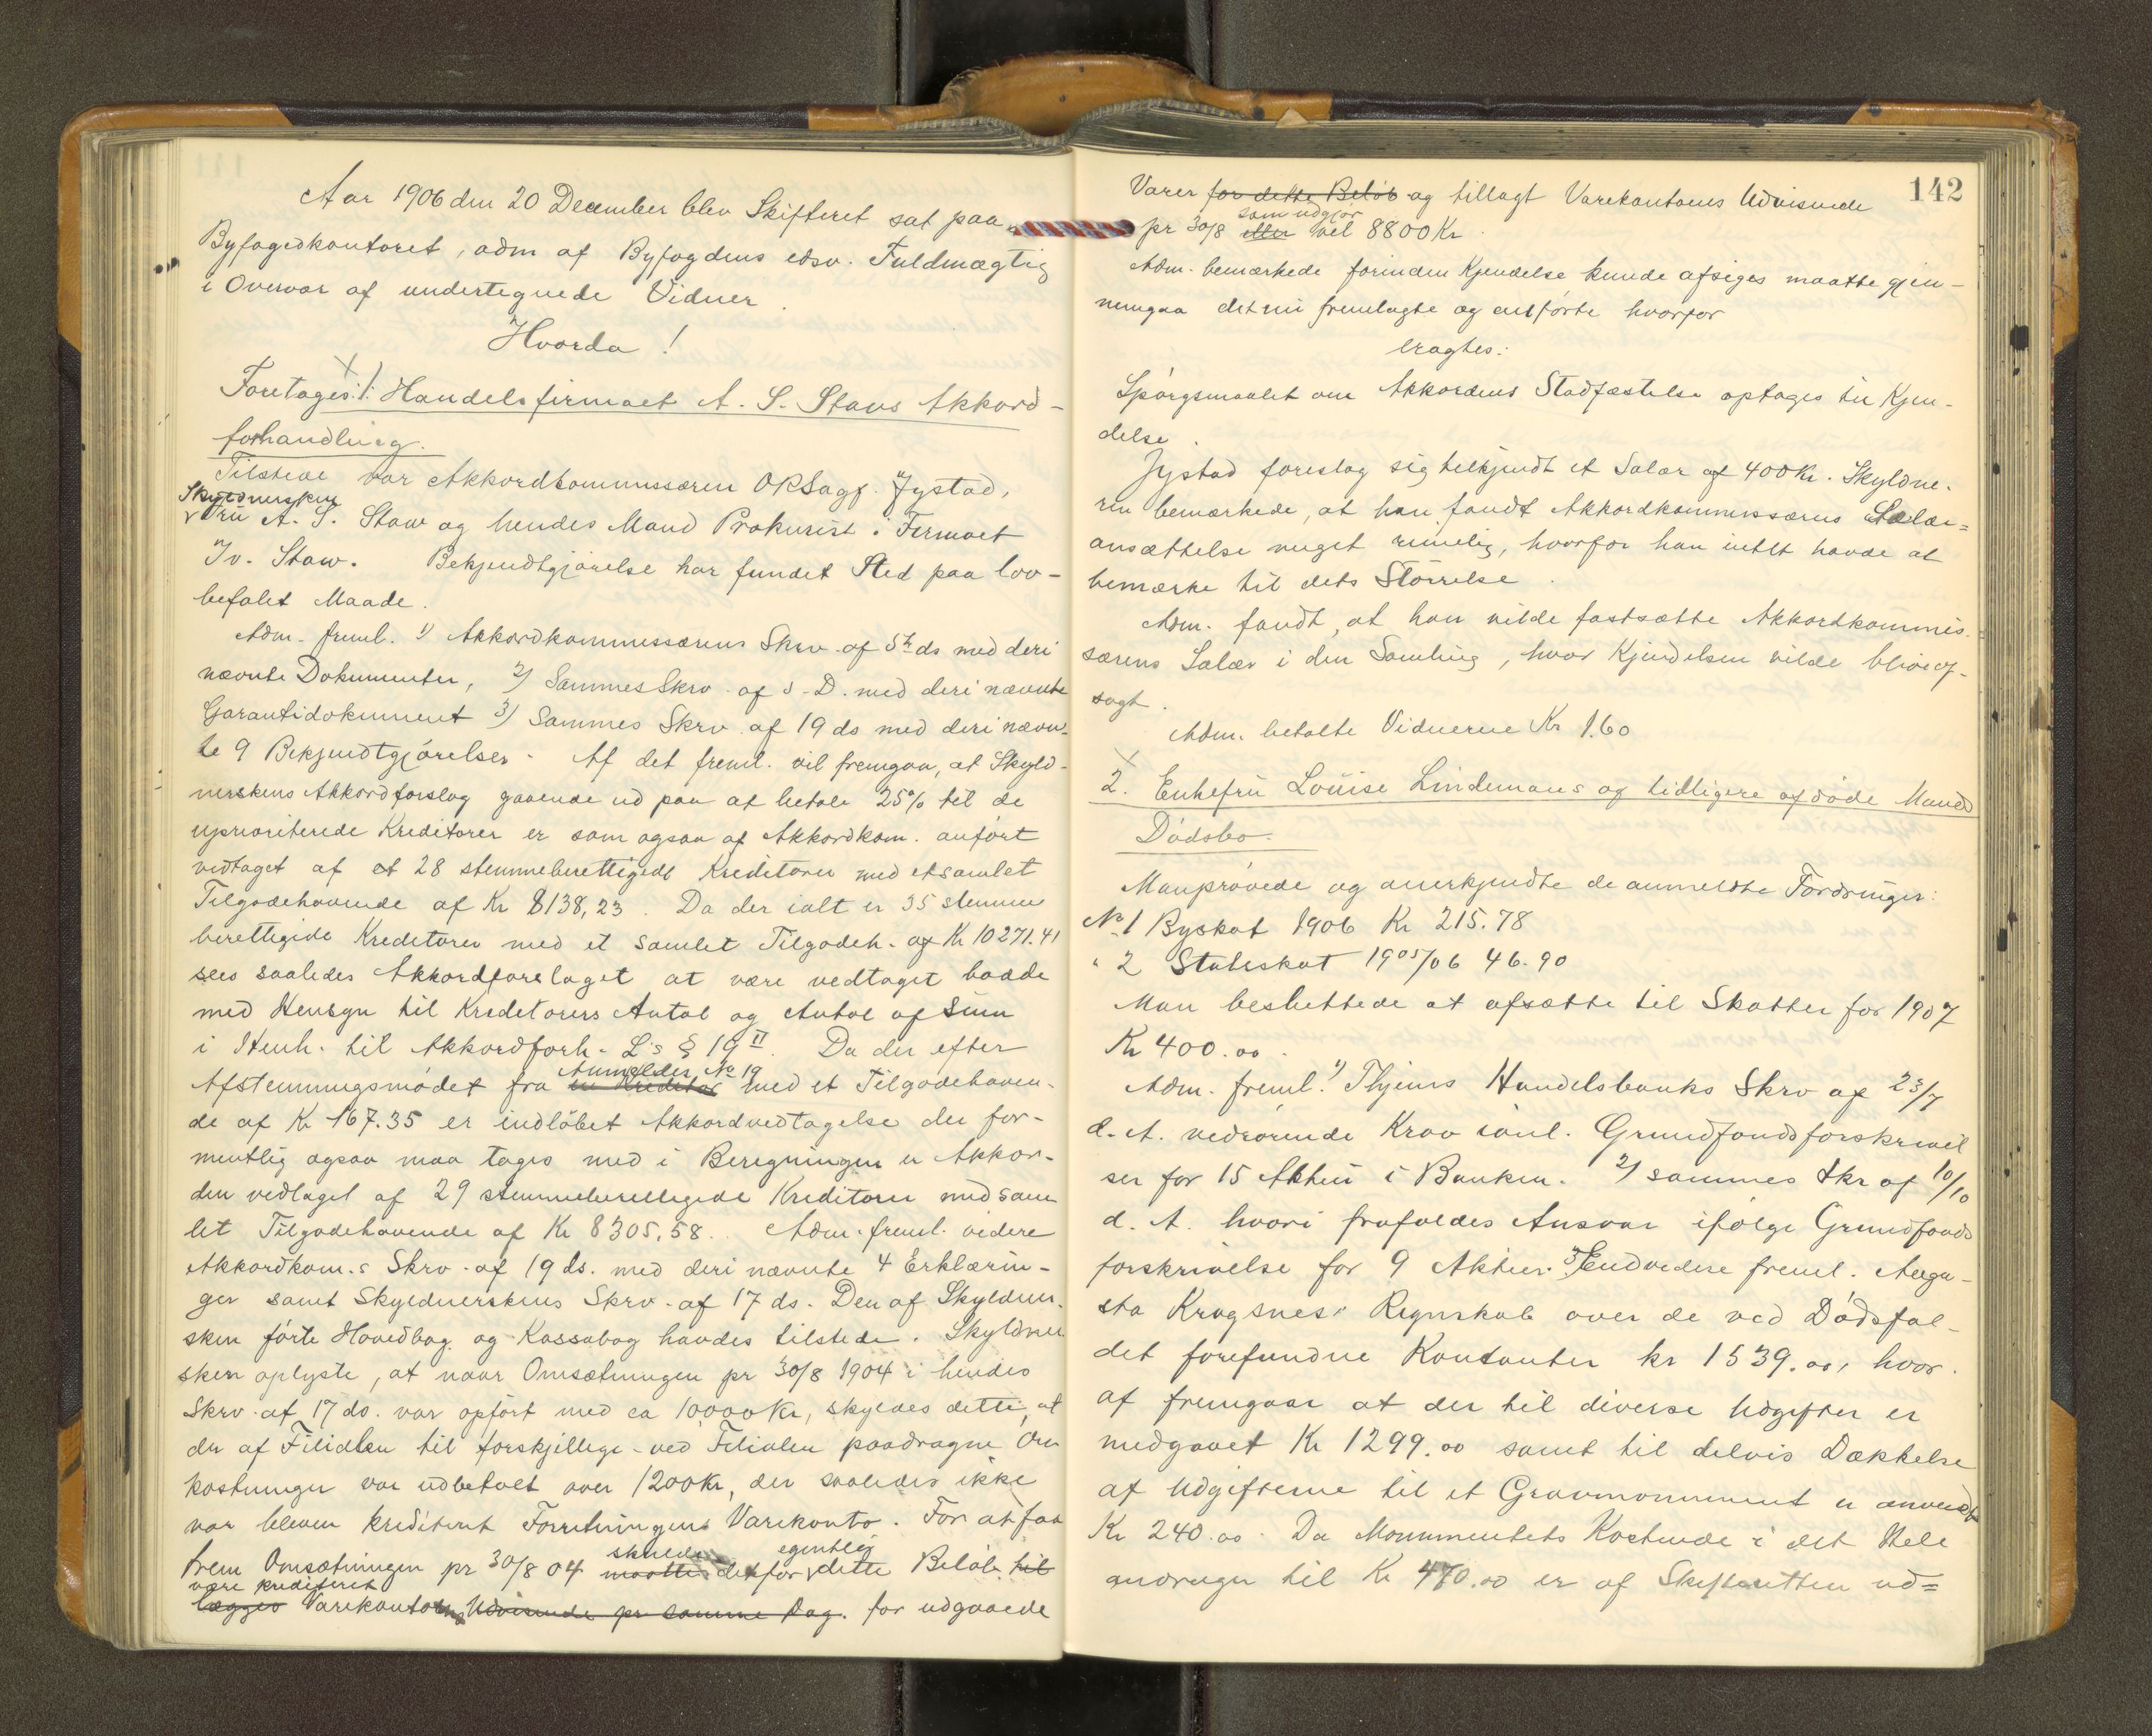 Aar 1906 den 20 December blev Skifteret sat paa
Byfogedkontoret, adm af Byfogdens edsv. Fuldmægtig
i Overvær af undertegnede Vidner.
Hvorda!
Foretages: 1: Handelsfirmaet A. S. Stavs Akkord-
forhandling.
Tilstede var Akkordkommissæren ORSagf. Jystad,
Skyldnersken
Fru A. S. Stav og hendes Mand Prokurist i Firmaet
Iv. Stav. Bekjendtgjørelse har fundet Sted paa lov-
befalet Maade.
Adm. freml. 1) Akkordkommissærens Skrv. af 5te ds med deri
nævnte Dokumenter, 2) Sammes Skrv. af s. D. med deri nævnte
Garantidokument 3) Sammes Skrv. af 19 ds med deri nævn-
te 9 Bekjendtgjørelser. Af det freml. vil fremgaa, at Skyld-
nerskens Akkordforslag gaaende ud paa at betale 25% til de
uprioriterede Kreditorer er som ogsaa af Akkordkom. anført
vedtaget af et 28 stemmeberettigede Kreditorer med et samlet
Tilgodehavende af Kr 8138,23. Da der ialt er 35 stemme
berettigede Kreditorer med et samlet Tilgodeh. af Kr 10271.41
sees saaledes Akkordforslaget at være vedtaget baade
med Hensyn til Kreditorers Antal og Antal af Sum
i Henh. til Akkordforh. L's § 19 II. Da der efter
Anmelder No 19
Afstemningsmødet fra en Kreditor med et Tilgodehaven-
de af Kr 167.35 er indløbet Akkordvedtagelse der for-
mentlig ogsaa maa tages med i Beregningen er Akkor-
den vedtaget af 29 stemmeberettigede Kreditorer med sam
let Tilgodehavende af Kr 8305,58. Adm. freml. videre
Akkordkom.s Skrv. af 19 ds. med deri nævnte 4 Erklærin-
ger samt Skyldnerskens Skrv. af 17 ds. Den af Skyldner-
sken førte Hovedbog og Kassabog havdes tilstede. Skyldner
sken oplyste, at naar Omsætningen pr 30/8 1904 i hendes
Skrv. af 17 ds. var opført med ca 10000 Kr, skyldes dette, at
der af Filialen til forskjellige ved Filialen paadragne Om
kostninger var udbetalt over 1200 Kr, der saaledes ikke
var bleven krediteret Forretningens Varekonto. For at faa
skulde egentlig
frem Omsætningen pr 30/8 04 maatte derfor dette Beløb til
være krediteret
lægges Varekontoens Udvisende pr samme Dag. for udgaaede
142
Varer for dette Beløb og tillagt Varekontoens Udvisende
som udgjør
pr 30/8 eller vel 8800 Kr.
Adm. bemærkede forinden Kjendelse kunde afsiges maatte gjen-
nemgaa det nu fremlagte og anførte hvorfor
eragtes:
Spørgsmaalet om Akkordens Stadfæstelse optages til Kjen-
delse.
Jystad foreslog sig tilkjendt et Salær af 400 Kr. Skyldne-
ren bemærkede, at han fandt Akkordkommissærens Salær=
ansættelse meget rimelig, hvorfor han intet havde at
bemærke til dets Størrelse.
Adm. fandt, at han vilde fastsætte Akkordkommis
særens Salær i den Samling, hvor Kjendelsen vilde blive af-
sagt.
Adm. betalte Vidnerne Kr 1.60
2. Enkefru Louise Lindemans og tidligere afdøde Mands
Dødsbo.
Man prøvede og anerkjendte de anmeldte Fordringer:
No 1 Byskat 1906 Kr 215.78
" 2 Statsskat 1905/06 46.90
Man besluttede at afsætte til Skatter for 1907
Kr 400.00.
Adm. freml. 1) Thjems Handelsbanks Skrv af 23/7
d. A. vedrørende Krav ianl. Grundfondsforskrivel
ser for 15 Aktier i Banken. 2) sammes Skr af 10/10
d. A. hvori frafaldes Ansvar ifølge Grundfonds
forskrivelse for 9 Aktier. 3) Endvidere freml. Augu-
sta Krogsnes' Regnskab over de ved Dødsfal-
det forefundne Kontanter kr 1539.00, hvor-
af fremgaar at der til diverse Udgifter er
medgaaet Kr 1299.00 samt til delvis Dækkelse
af Udgifterne til et Gravmonument er anvendt
Kr 240.00. Da Monumentets Kostende i det Hele
andrager til Kr 470.00 er af Skifteretten ud=